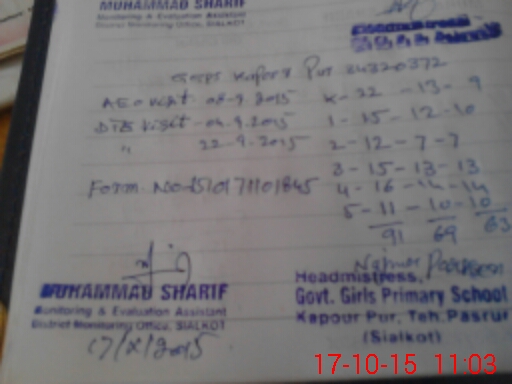 MUHAMMAD SHARIF
Monitoring & Evaluation Assistant
District Monitoring Office, SIALKOT
GGPS Kapoor Pur 34320372
AEO visit 08-9-2015 K-22-13-9
DTE visit 04-9-2015 1-15-12-10
" 22-9-2015 2-12-7-7
3-15-13-13
Form No 1510171101845 4-16-14-14
5-11-10-10
91 69 63
MUHAMMAD SHARIF
Monitoring & Evaluation Assistant
District Monitoring Office, SIALKOT
17/X/2015
Parveen
Headmistress,
Govt. Girls Primary School
Kapour Pur, Teh. Pasrur
(Sialkot)
17-10-15 11:03